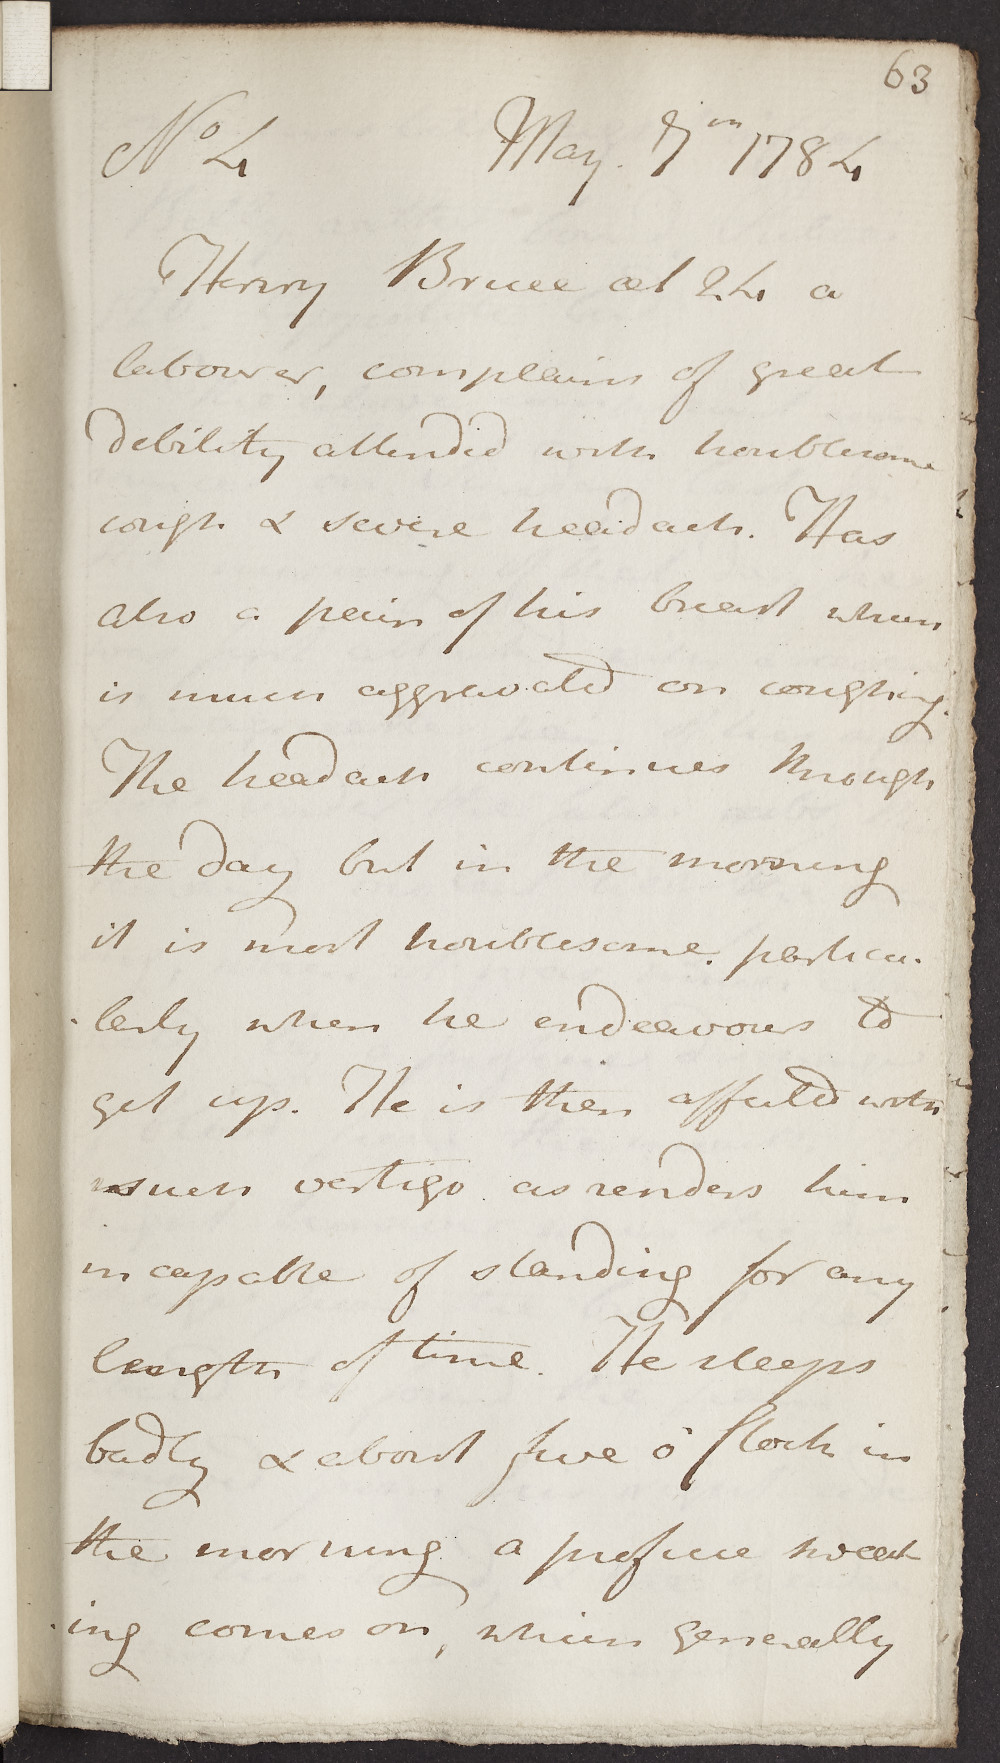 63
No 4 May. 7th 1784
Henry Bruce æt 24 a
labourer, complains of great
debility attended with troublesome
cough & severe headach. Has
also a pain of his breast which
is much aggravated on coughing.
The headach continues through
the day but in the morning
it is most troublesome. particu-
larly when he endeavours to
get up. He is then affected with
such vertigo as renders him
incapable of standing for any
length of time. He sleeps
badly & about five o'Clock in
the morning a profuse sweat
ing comes on, which generally